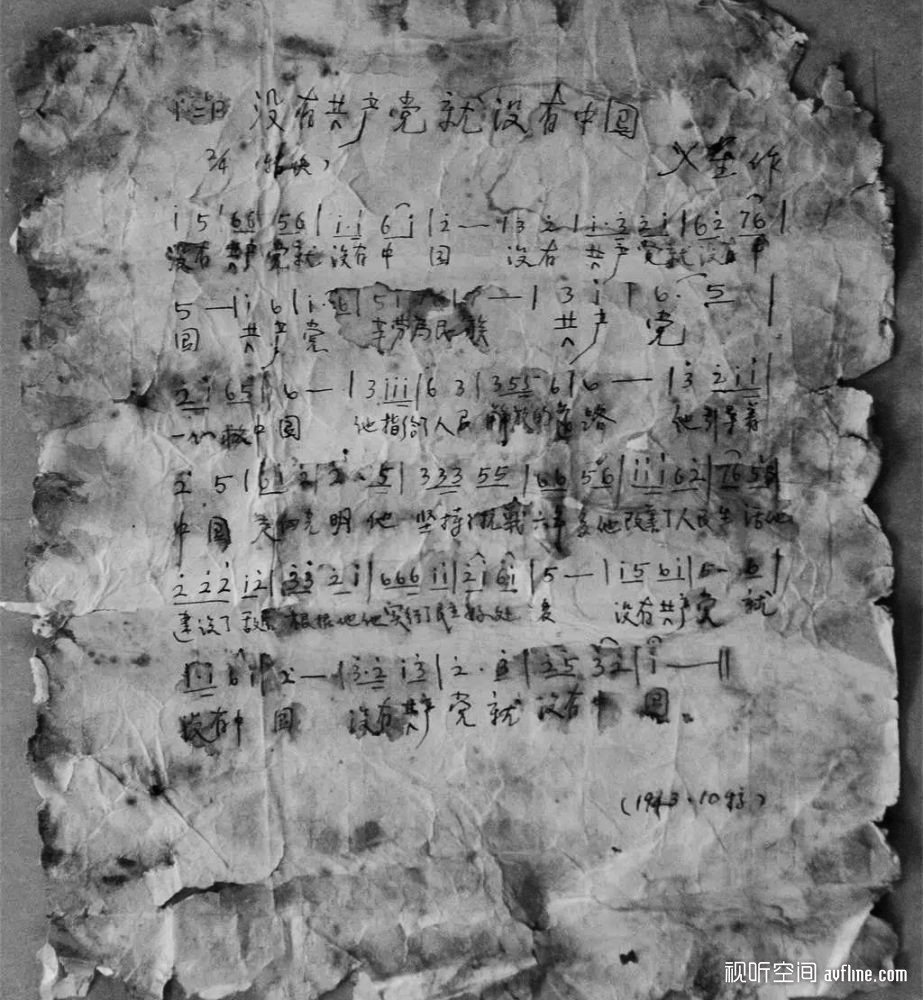 1=D 没有共产党就没有中国
2/4 (稍快) 火星作
i 5 | 66 56 | i·i 6 i | 2 — | 3 2 | i·3 2 i | 6 2 76 |
没有 共产党就 没有中 国 没有 共产党就没有中
5 — | i 6 | i· 6 | 5 i — | 3 i | 6· 5 |
国 共产党 辛劳为民族 共产党
2 i 65 | 6 — | 3 i i i | 6 3 | 355 6 | 6 — | 3 2 i i |
一心救中国 他指给了人民 解放的道路 他引导着
2 5 | 6 i 2 | 2· 5 | 333 55 | 66 56 | i i i 62 | 76 56
中国 走向光明 他 坚持了抗战六年多他改善了人民生活他
2 2 2 i 2 | 33 2 i | 666 i i | 2 i 6 i | 5 — | i 5 6 i | 5· 6 |
建设了敌后根据地他实行了民主好处多 没有共产党 就
i i 6 i | 2 — | 3·2 i 3 | 2· 3 | 25 32 | i — ‖
没有中 国 没有共产党就 没有中 国。
(1943·10抄)
视听空间 avfline.com